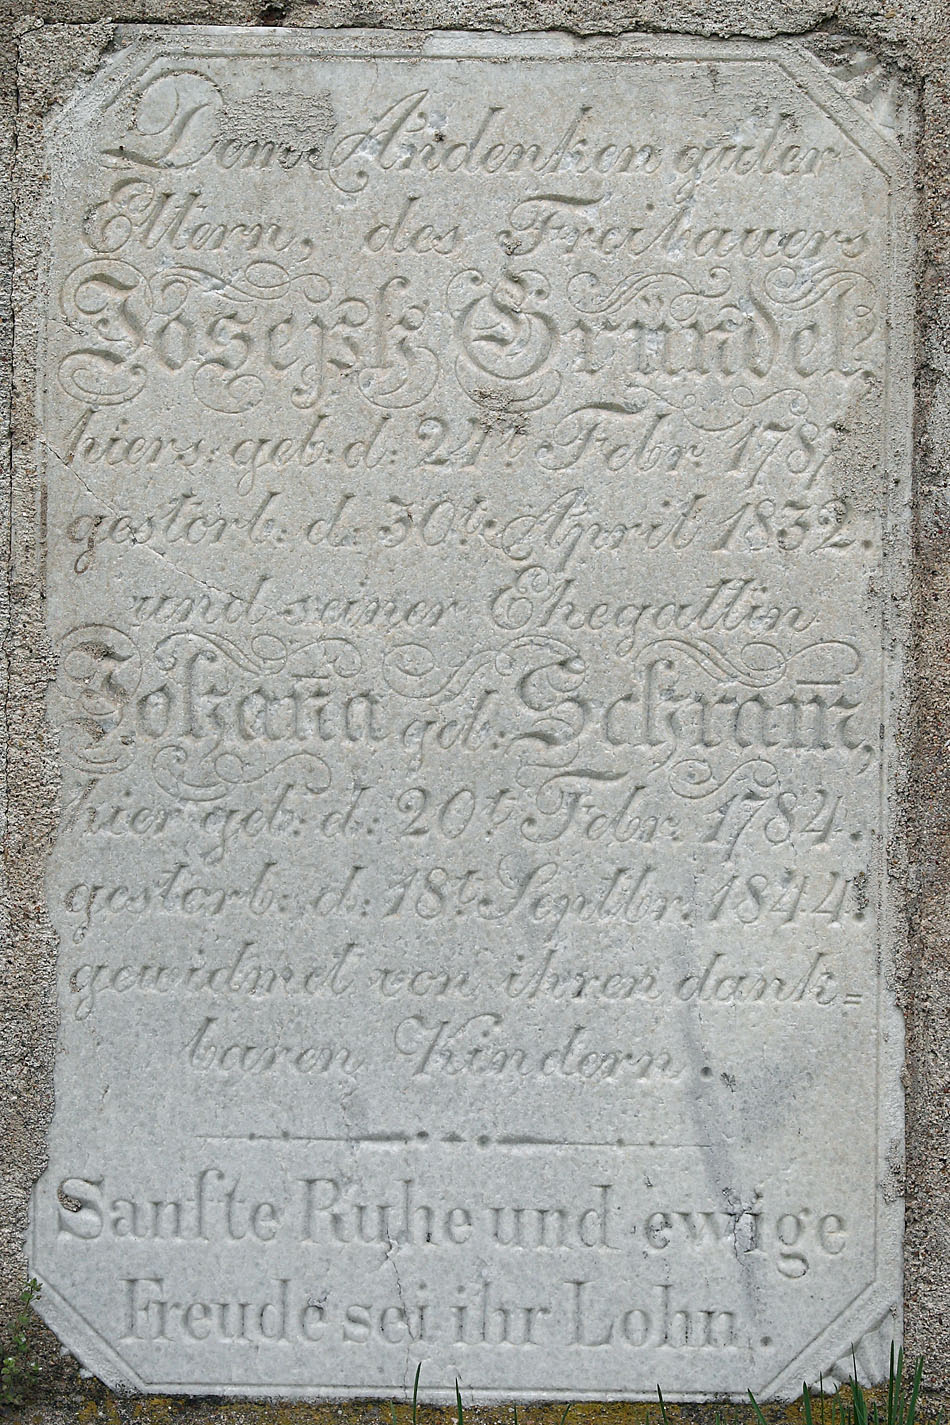 Dem Andenken guter
Eltern, des Freibauers
Joseph Gründel,
hiers: geb: d: 21t. Febr. 1787
gestorb: d: 30t. April 1832.
und seiner Ehegattin
Johan̄a geb. Schram̄,
hier geb: d. 20t. Febr. 1784.
gestorb: d. 18t. Septbr. 1844.
gewidmet von ihren dank=
baren Kindern.
Sanfte Ruhe und ewige
Freude sei ihr Lohn.